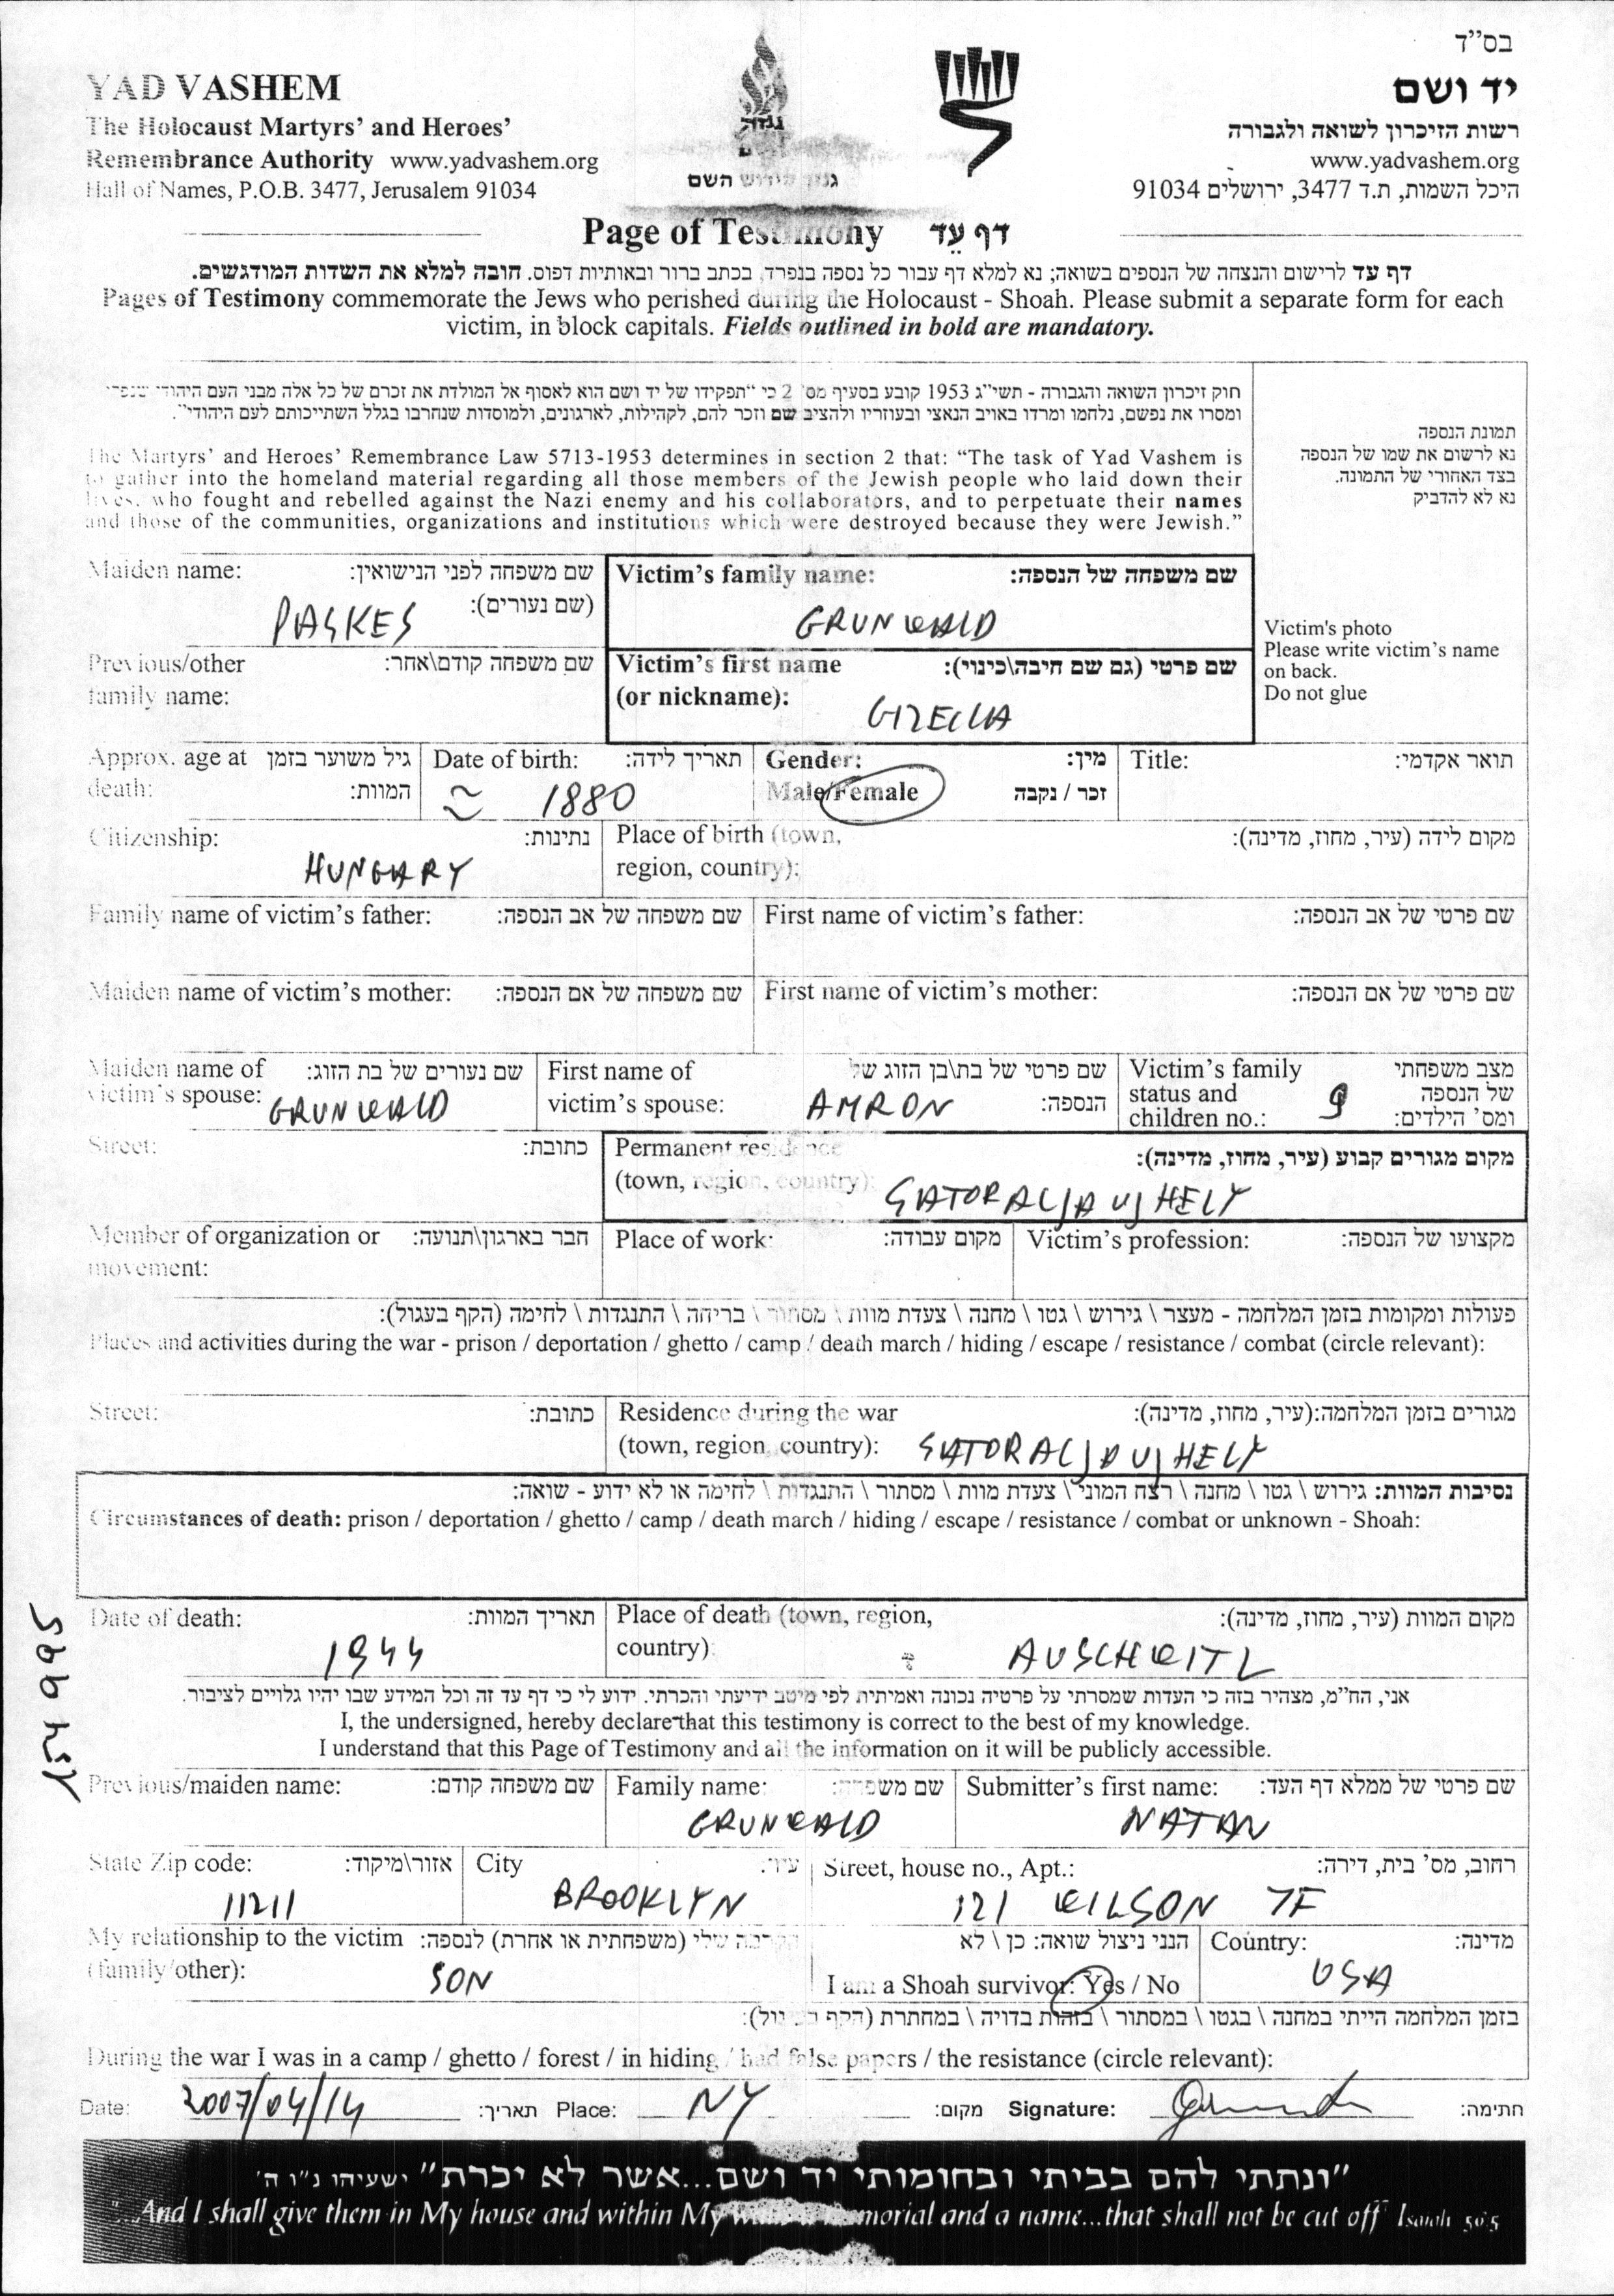 בס"ד
YAD VASHEM
יד ושם
The Holocaust Martyrs' and Heroes'
רשות הזיכרון לשואה ולגבורה
Remembrance Authority www.yadvashem.org
www.yadvashem.org
Hall of Names, P.O.B. 3477, Jerusalem 91034
היכל השמות, ת.ד 3477, ירושלים 91034
השם
Page of Testimony דף עד
דף עד לרישום והנצחה של הנספים בשואה; נא למלא דף עבור כל נספה בנפרד, בכתב ברור ובאותיות דפוס. חובה למלא את השדות המודגשים.
Pages of Testimony commemorate the Jews who perished during the Holocaust - Shoah. Please submit a separate form for each
victim, in block capitals. Fields outlined in bold are mandatory.
חוק זיכרון השואה והגבורה - תשי"ג 1953 קובע בסעיף מס' 2 כי "תפקידו של יד ושם הוא לאסוף אל המולדת את זכרם של כל אלה מבני העם היהודי שנפלו
ומסרו את נפשם, נלחמו ומרדו באויב הנאצי ובעוזריו ולהציב שם וזכר להם, לקהילות, לארגונים, ולמוסדות שנחרבו בגלל השתייכותם לעם היהודי".
The Martyrs' and Heroes' Remembrance Law 5713-1953 determines in section 2 that: "The task of Yad Vashem is
to gather into the homeland material regarding all those members of the Jewish people who laid down their
lives, who fought and rebelled against the Nazi enemy and his collaborators, and to perpetuate their names
and those of the communities, organizations and institutions which were destroyed because they were Jewish."
תמונת הנספה
נא לרשום את שמו של הנספה
בצד האחורי של התמונה.
נא לא להדביק
Victim's photo
Please write victim's name
on back.
Do not glue
Maiden name: שם משפחה לפני הנישואין:
(שם נעורים):
PASKES
Victim's family name: שם משפחה של הנספה:
GRUNWALD
Previous/other שם משפחה קודם\אחר:
family name:
Victim's first name שם פרטי (גם שם חיבה\כינוי):
(or nickname):
GIZELLA
Approx. age at גיל משוער בזמן
death: המוות:
Date of birth: תאריך לידה:
≈ 1880
Gender: מין:
Male/Female זכר / נקבה
Title: תואר אקדמי:
Citizenship: נתינות:
HUNGARY
Place of birth (town, מקום לידה (עיר, מחוז, מדינה):
region, country):
Family name of victim's father: שם משפחה של אב הנספה:
First name of victim's father: שם פרטי של אב הנספה:
Maiden name of victim's mother: שם משפחה של אם הנספה:
First name of victim's mother: שם פרטי של אם הנספה:
Maiden name of שם נעורים של בת הזוג:
victim's spouse: GRUNWALD
First name of שם פרטי של בת\בן הזוג של
victim's spouse: AMRON הנספה:
Victim's family מצב משפחתי
status and 9 של הנספה
children no.: ומס' הילדים:
Street: כתובת:
Permanent residence מקום מגורים קבוע (עיר, מחוז, מדינה):
(town, region, country):
SATORALJAUJHELY
Member of organization or חבר בארגון\תנועה:
movement:
Place of work: מקום עבודה:
Victim's profession: מקצועו של הנספה:
פעולות ומקומות בזמן המלחמה - מעצר \ גירוש \ גטו \ מחנה \ צעדת מוות \ מסתור \ בריחה \ התנגדות \ לחימה (הקף בעגול):
Places and activities during the war - prison / deportation / ghetto / camp / death march / hiding / escape / resistance / combat (circle relevant):
Street: כתובת:
Residence during the war מגורים בזמן המלחמה:(עיר, מחוז, מדינה):
(town, region, country): SATORALJAUJHELY
נסיבות המוות: גירוש \ גטו \ מחנה \ רצח המוני \ צעדת מוות \ מסתור \ התנגדות \ לחימה או לא ידוע - שואה:
Circumstances of death: prison / deportation / ghetto / camp / death march / hiding / escape / resistance / combat or unknown - Shoah:
Date of death: תאריך המוות:
1944
Place of death (town, region, מקום המוות (עיר, מחוז, מדינה):
country):
AUSCHWITZ
154995
אני, הח"מ, מצהיר בזה כי העדות שמסרתי על פרטיה נכונה ואמיתית לפי מיטב ידיעתי והכרתי. ידוע לי כי דף עד זה וכל המידע שבו יהיו גלויים לציבור.
I, the undersigned, hereby declare that this testimony is correct to the best of my knowledge.
I understand that this Page of Testimony and all the information on it will be publicly accessible.
Previous/maiden name: שם משפחה קודם:
Family name: שם משפחה:
GRUNWALD
Submitter's first name: שם פרטי של ממלא דף העד:
NATAN
State Zip code: אזור\מיקוד:
11211
City עיר:
BROOKLYN
Street, house no., Apt.: רחוב, מס' בית, דירה:
121 WILSON 7F
My relationship to the victim הקרבה שלי (משפחתית או אחרת) לנספה:
(family/other): SON
הנני ניצול שואה: כן \ לא
I am a Shoah survivor: Yes / No
Country: מדינה:
USA
בזמן המלחמה הייתי במחנה \ בגטו \ במסתור \ בזהות בדויה \ במחתרת (הקף בעיגול):
During the war I was in a camp / ghetto / forest / in hiding / had false papers / the resistance (circle relevant):
Date: 2007/04/14 תאריך: Place: NY מקום: Signature: חתימה:
"ונתתי להם בביתי ובחומותי יד ושם...אשר לא יכרת" ישעיהו נ"ו ה'
"...And I shall give them in My house and within My walls a memorial and a name...that shall not be cut off" Isaiah 56:5